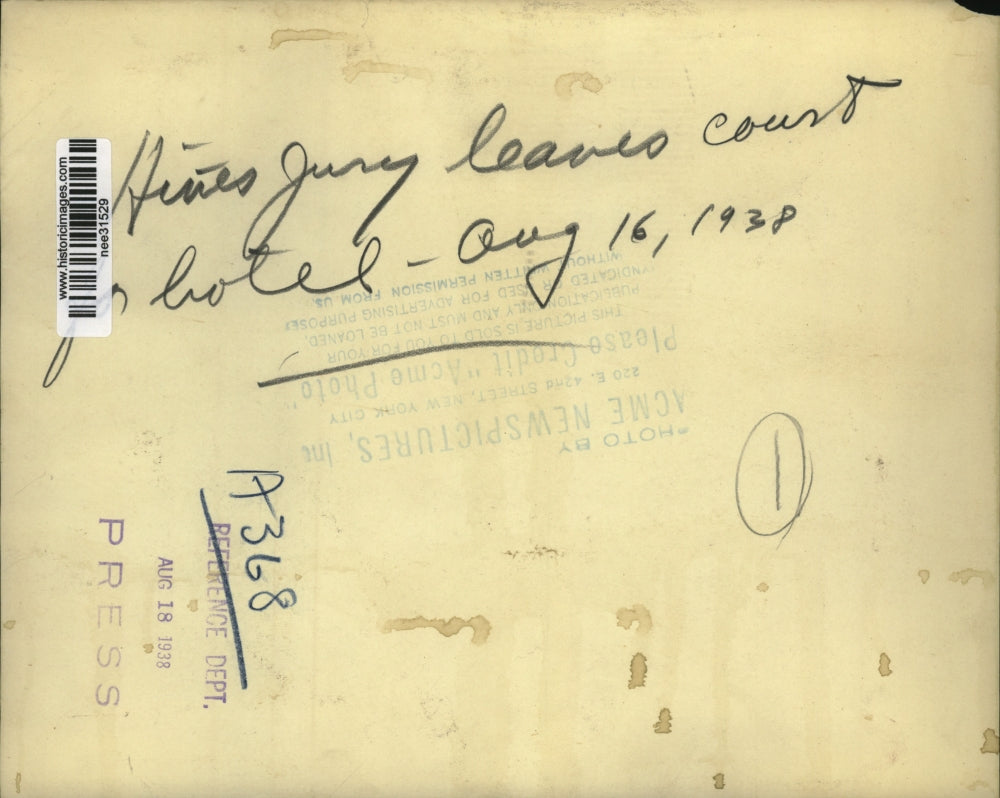 Hines Jury leaves court
for hotel - Aug 16, 1938
www.historicimages.com
nee31529
PHOTO BY
ACME NEWSPICTURES, Inc
220 E. 42nd STREET, NEW YORK CITY
Please Credit "Acme Photo"
THIS PICTURE IS SOLD TO YOU FOR YOUR
PUBLICATION ONLY AND MUST NOT BE LOANED,
SYNDICATED OR USED FOR ADVERTISING PURPOSES
WITHOUT WRITTEN PERMISSION FROM US.
1
A368
REFERENCE DEPT.
AUG 18 1938
PRESS